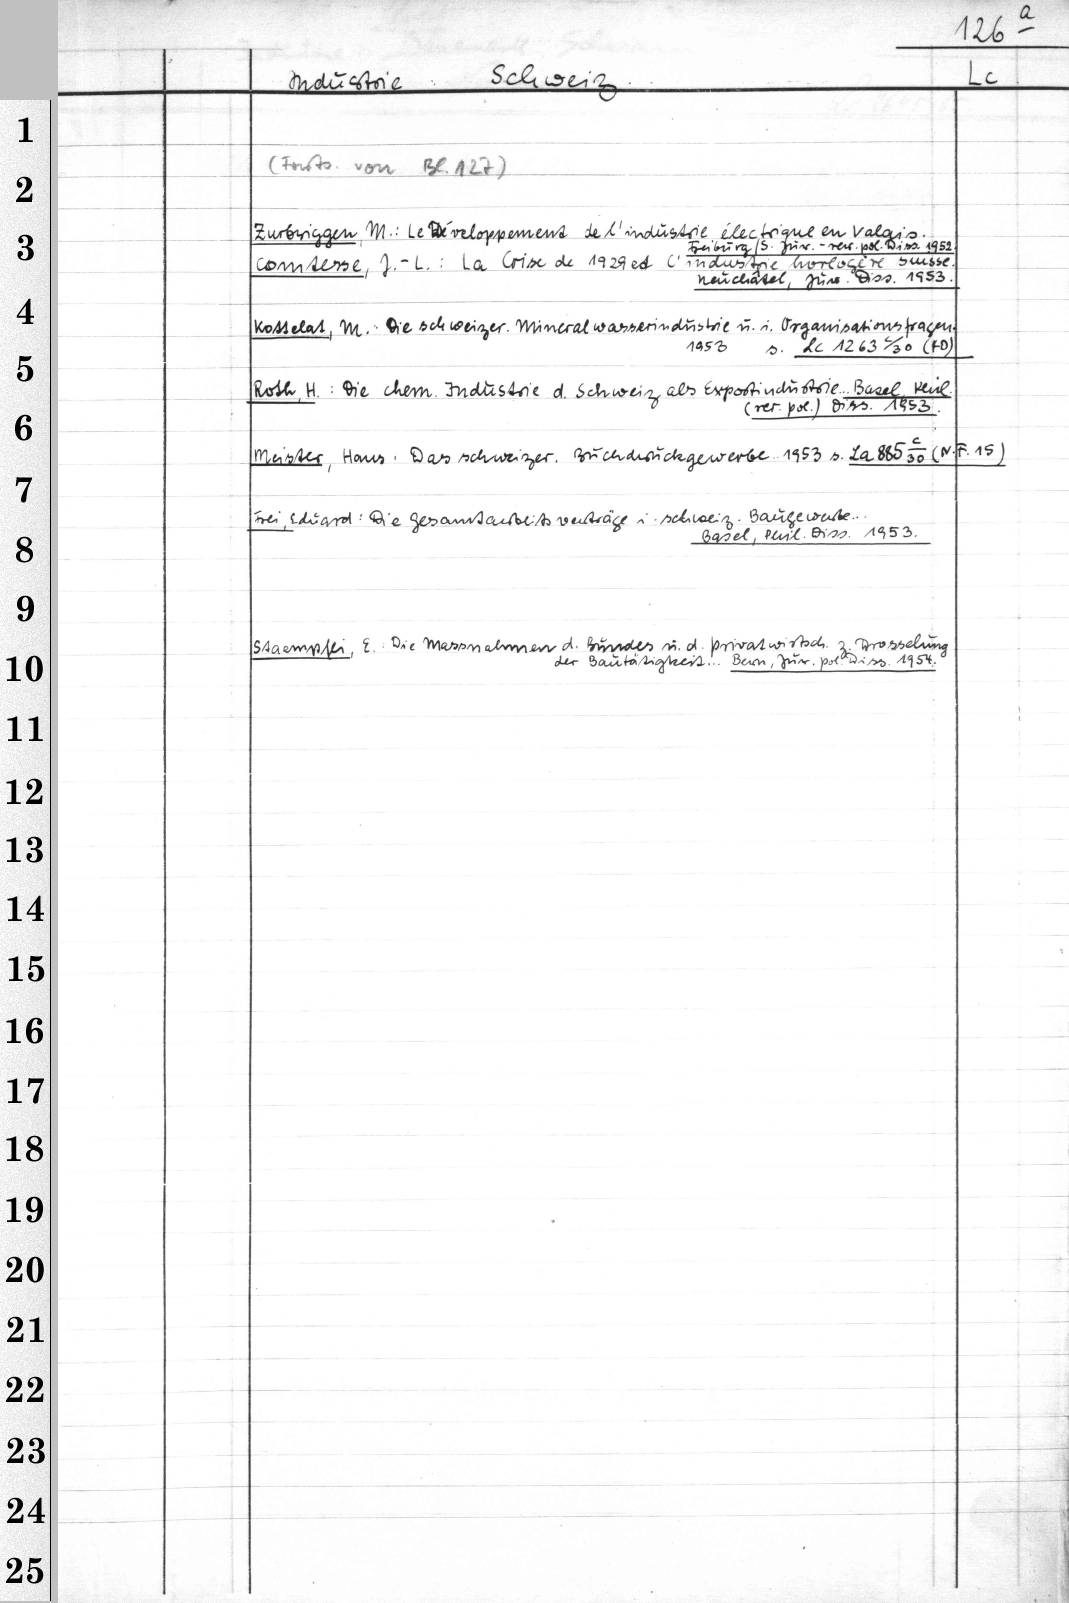 126 a
Industrie Schweiz. Lc
(Forts. von Bl. 127)
Zurbriggen, M.: Le Développement de l'industrie électrique en Valais.
Freiburg/S. Jur.-rer. pol. Diss. 1952
Comtesse, J.-L.: La Crise de 1929 et l'industrie horlogère suisse.
Neuchâtel, Jur. Diss. 1953.
Kottelat, M.: Die schweizer. Mineralwasserindustrie u. i. Organisationsfragen.
1953 s. Lc 1263 c/30 (FD)
Roth, H.: Die chem. Industrie d. Schweiz als Exportindustrie.. Basel, Phil.
(rer. pol.) Diss. 1953.
Meister, Hans. Das schweizer. Buchdruckgewerbe.. 1953 s. La 885 c/30 (N.F. 15)
Frei, Eduard: Die Gesamtarbeitsverträge i. schweiz. Baugewerbe...
Basel, Phil. Diss. 1953.
Staempfli, E.: Die Massnahmen d. Bundes u. d. Privatwirtsch. z. Drosselung
der Bautätigkeit... Bern, Jur. pol. Diss. 1954.
1
2
3
4
5
6
7
8
9
10
11
12
13
14
15
16
17
18
19
20
21
22
23
24
25